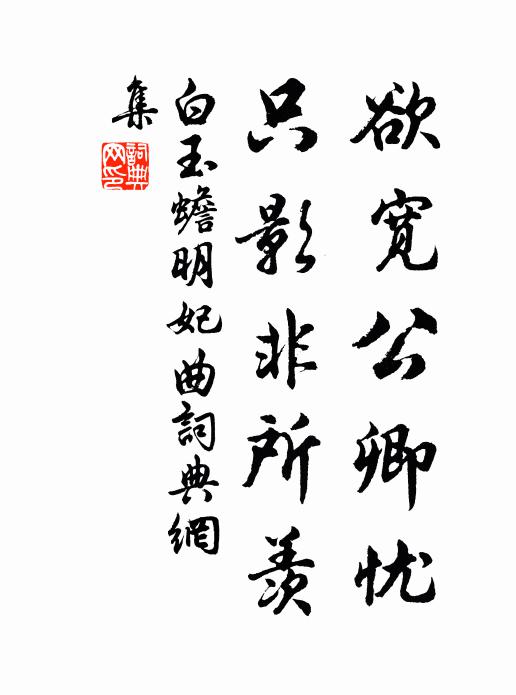 欲宽公卿忧
只影非所羡
白玉蟾明妃曲詞典網
集
詞典
网印